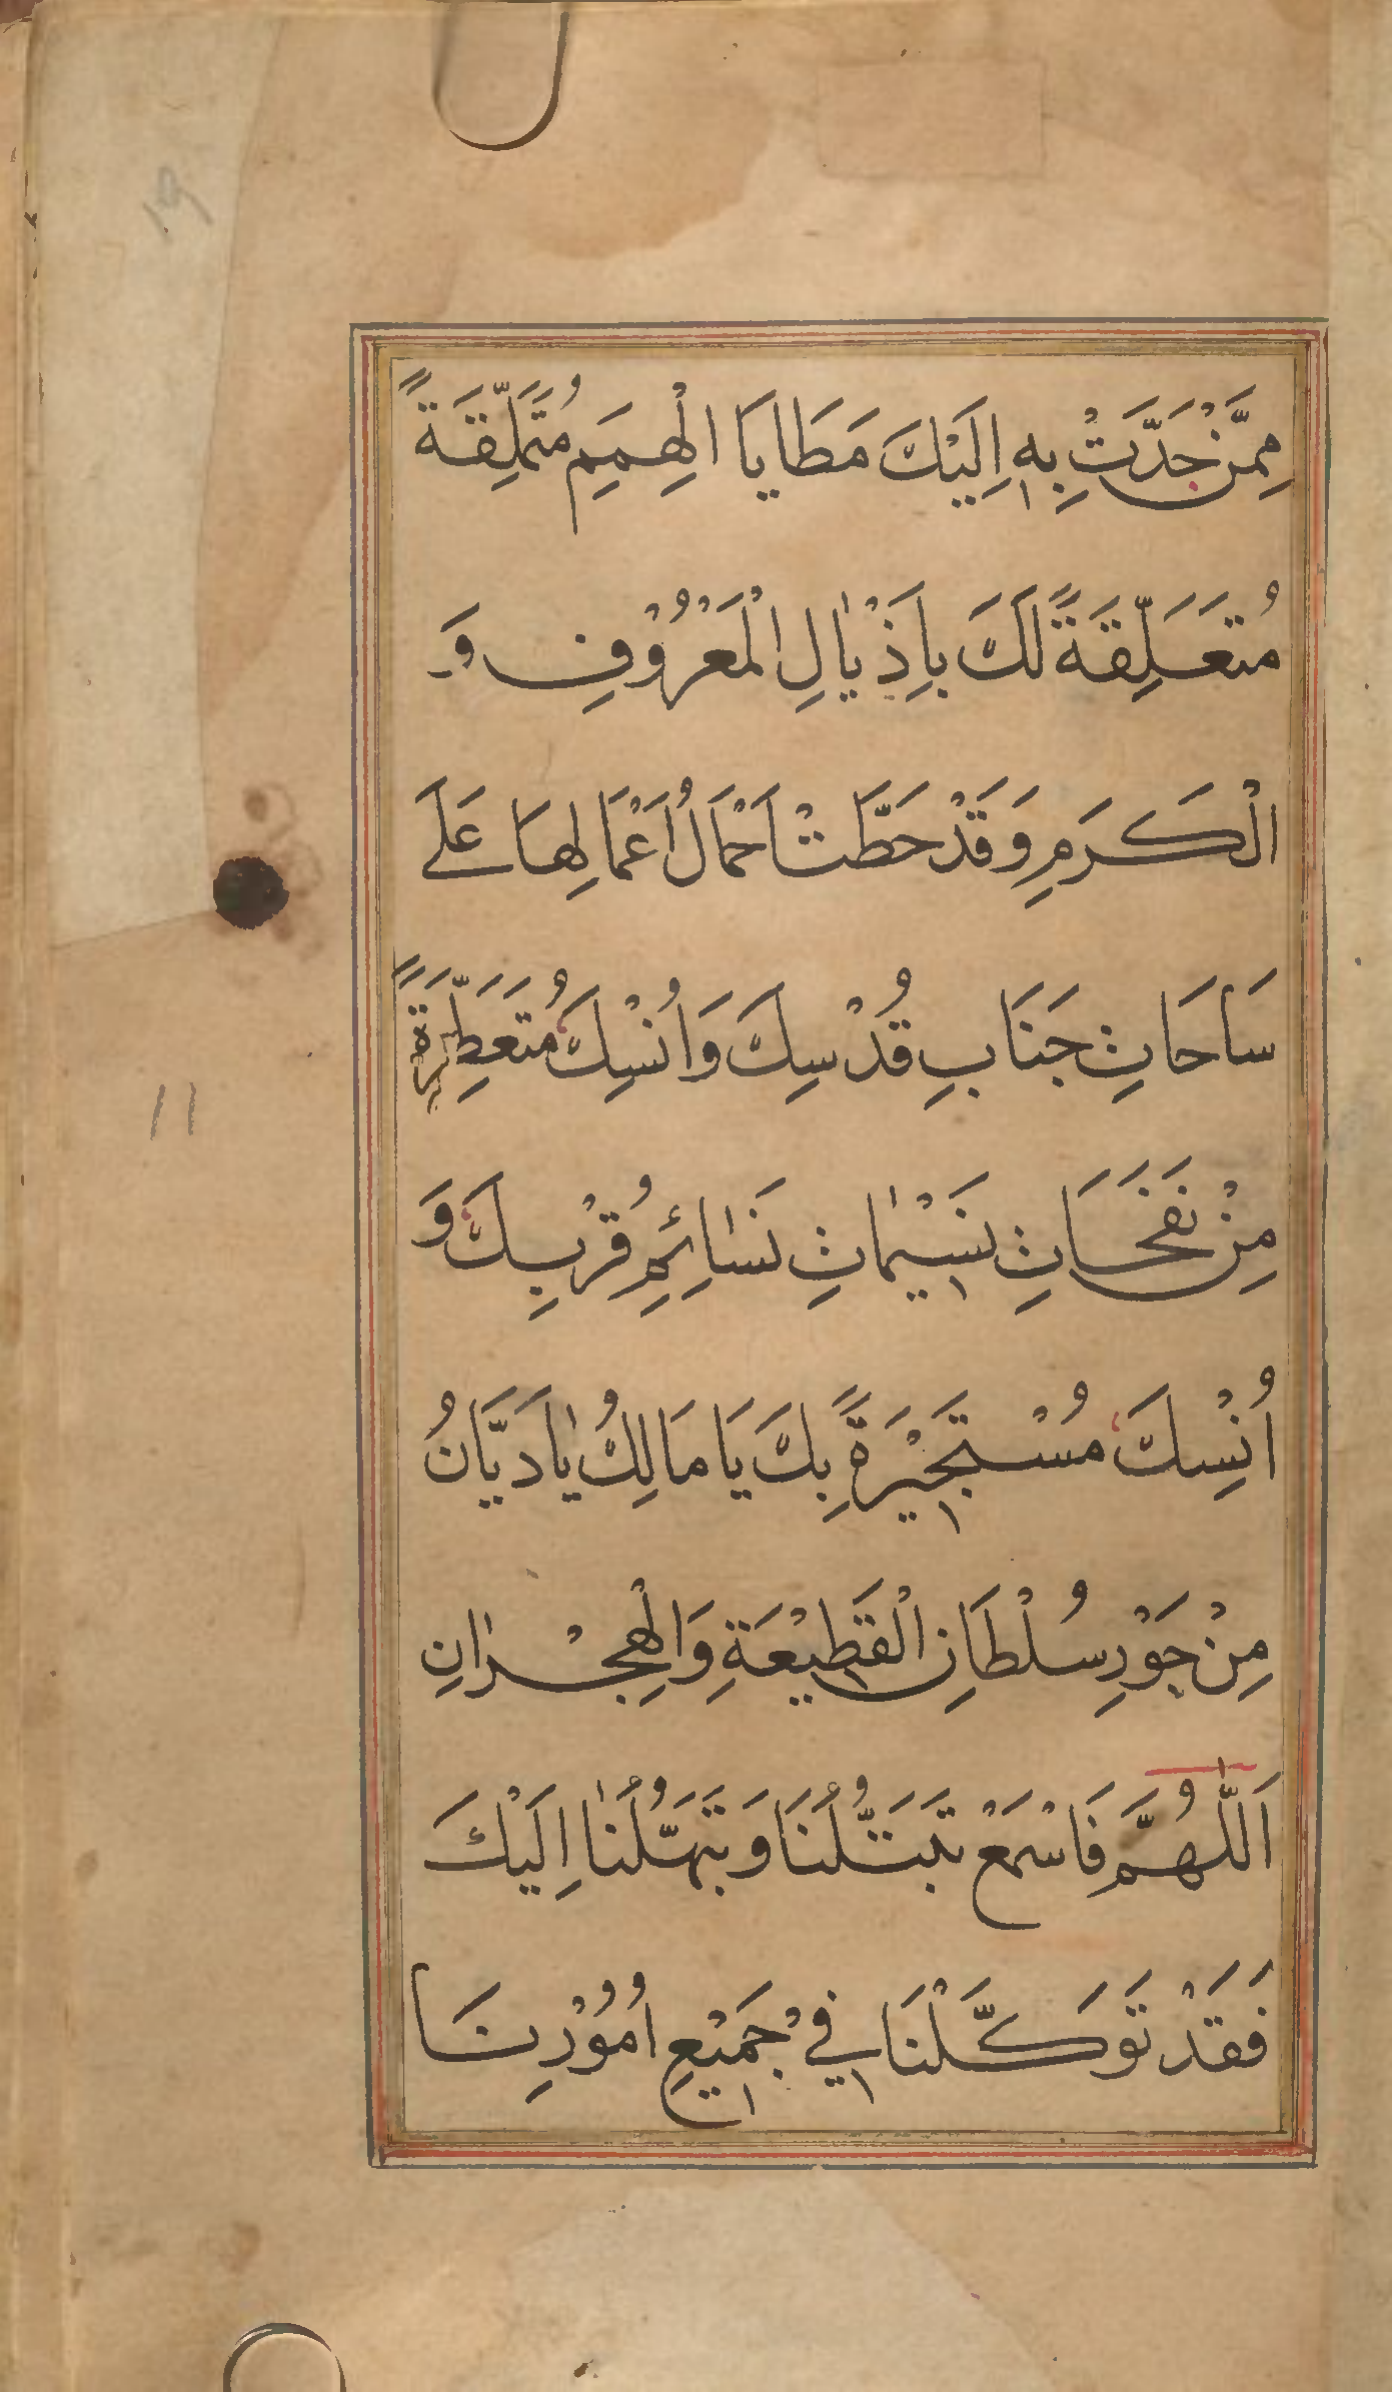 ١٩
مِمَّنْ جَدَّتْ بِهٖ اِلَيْكَ مَطَايَا الْهِمَمِ مُتَمَلِّقَةً
مُتَعَلِّقَةً لَكَ بِاَذْيٰالِ الْمَعْرُوْفِ وَ
الْكَرَمِ وَقَدْ حَطَّتْ اَحْمَالُ اَعْمَالِهَا عَلَے
سَاَحَاتِ جَنَابِ قُدْسِكَ وَاُنْسِكَ مُتَعَطِّرَةً
مِنْ نَفَحَاتِ نَسَيْمٰاتِ نَسٰائِمِ قُرْبِكَ وَ
اُنْسِكَ مُسْتَجِيْرَةً بِكَ يَا مَالِكُ يٰا دَيَّانُ
مِنْ جَوْرِ سُلْطَانِ الْقَطِيْعَةِ وَالْهِجْرٰانِ
اَللّٰهُمَّ فَاسْمَعْ تَبَتُّلَنَا وَتَبَهُّلَنٰا اِلَيْكَ
فَقَدْ تَوَكَّلْنَا فِيْ جَمِيْعِ اُمُوْرِنَا
١١